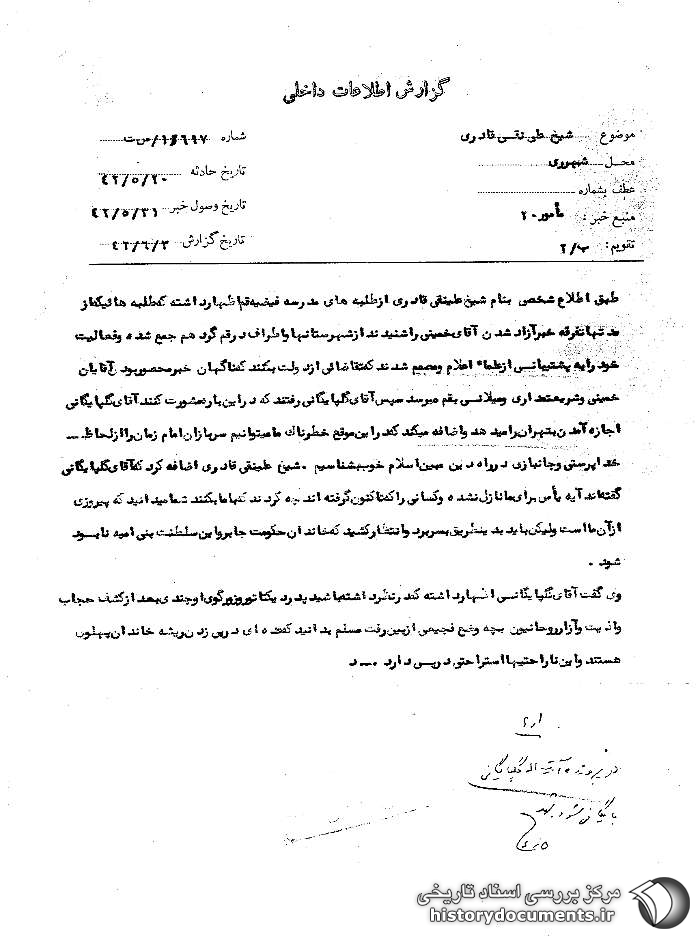 گزارش اطلاعات داخلی
موضوع شیخ علی نقی قادری
شماره /س ت
محل شهرری
تاریخ حادثه ۴۲/۵/۲۰
عطف بشماره
تاریخ وصول خبر ۴۲/۵/۳۱
منبع خبر: مأمور ۲۰
تاریخ گزارش ۴۲/۶/۳
تقویم: ب/۲
طبق اطلاع شخصی بنام شیخ علینقی قادری از طلبه های مدرسه فیضیه قم اظهار داشته که طلبه هائیکه از
مدتها متفرقه خبر آزاد شدن آقای خمینی را شنیدند از شهرستانها و اطراف در قم گرد هم جمع شده و فعالیت
خود را به پشتیبانی از علماء اعلام و مصمم شدند که تقاضائی از دولت بکنند که ناگهان خبر محصور بودن آقایان
خمینی و شریعتمداری و میلانی بقم میرسد سپس آقای گلپایگانی رفتند که در این باره مشورت کنند آقای گلپایگانی
اجازه آمدن بتهران را میدهد و اضافه میکند که در این موقع خطرناک ما میتوانیم سربازان امام زمان را از لحاظ
خداپرستی و جانبازی در راه دین مبین اسلام خوب بشناسیم . شیخ علینقی قادری اضافه کرد که آقای گلپایگانی
گفته‌اند آیه یأس برای ما نازل نشده و کسانی را که تا کنون گرفته اند چه کردند که بما بکنند شما میدانید که پیروزی
از آن ما است ولیکن باید بدینطریق بسر برد و انتظار کشید که خاندان حکومت جابر و این سلطنت بنی امیه نابود
شود .
وی گفت آقای گلپایگانی اظهار داشته که در نظر داشته باشید پدر دیکتاتور و زورگوی او چندی بعد از کشف حجاب
و اذیت و آزار روحانیون بچه وضع فجیعی از بین رفت مسلم بدانید که عده ای در پی زدن ریشه خاندان پهلوی
هستند و این ناراحتیها استراحتی در پس دارد . د
در پرونده آیت اله گلپایگانی
بایگانی شود
مرکز بررسی اسناد تاریخی
historydocuments.ir